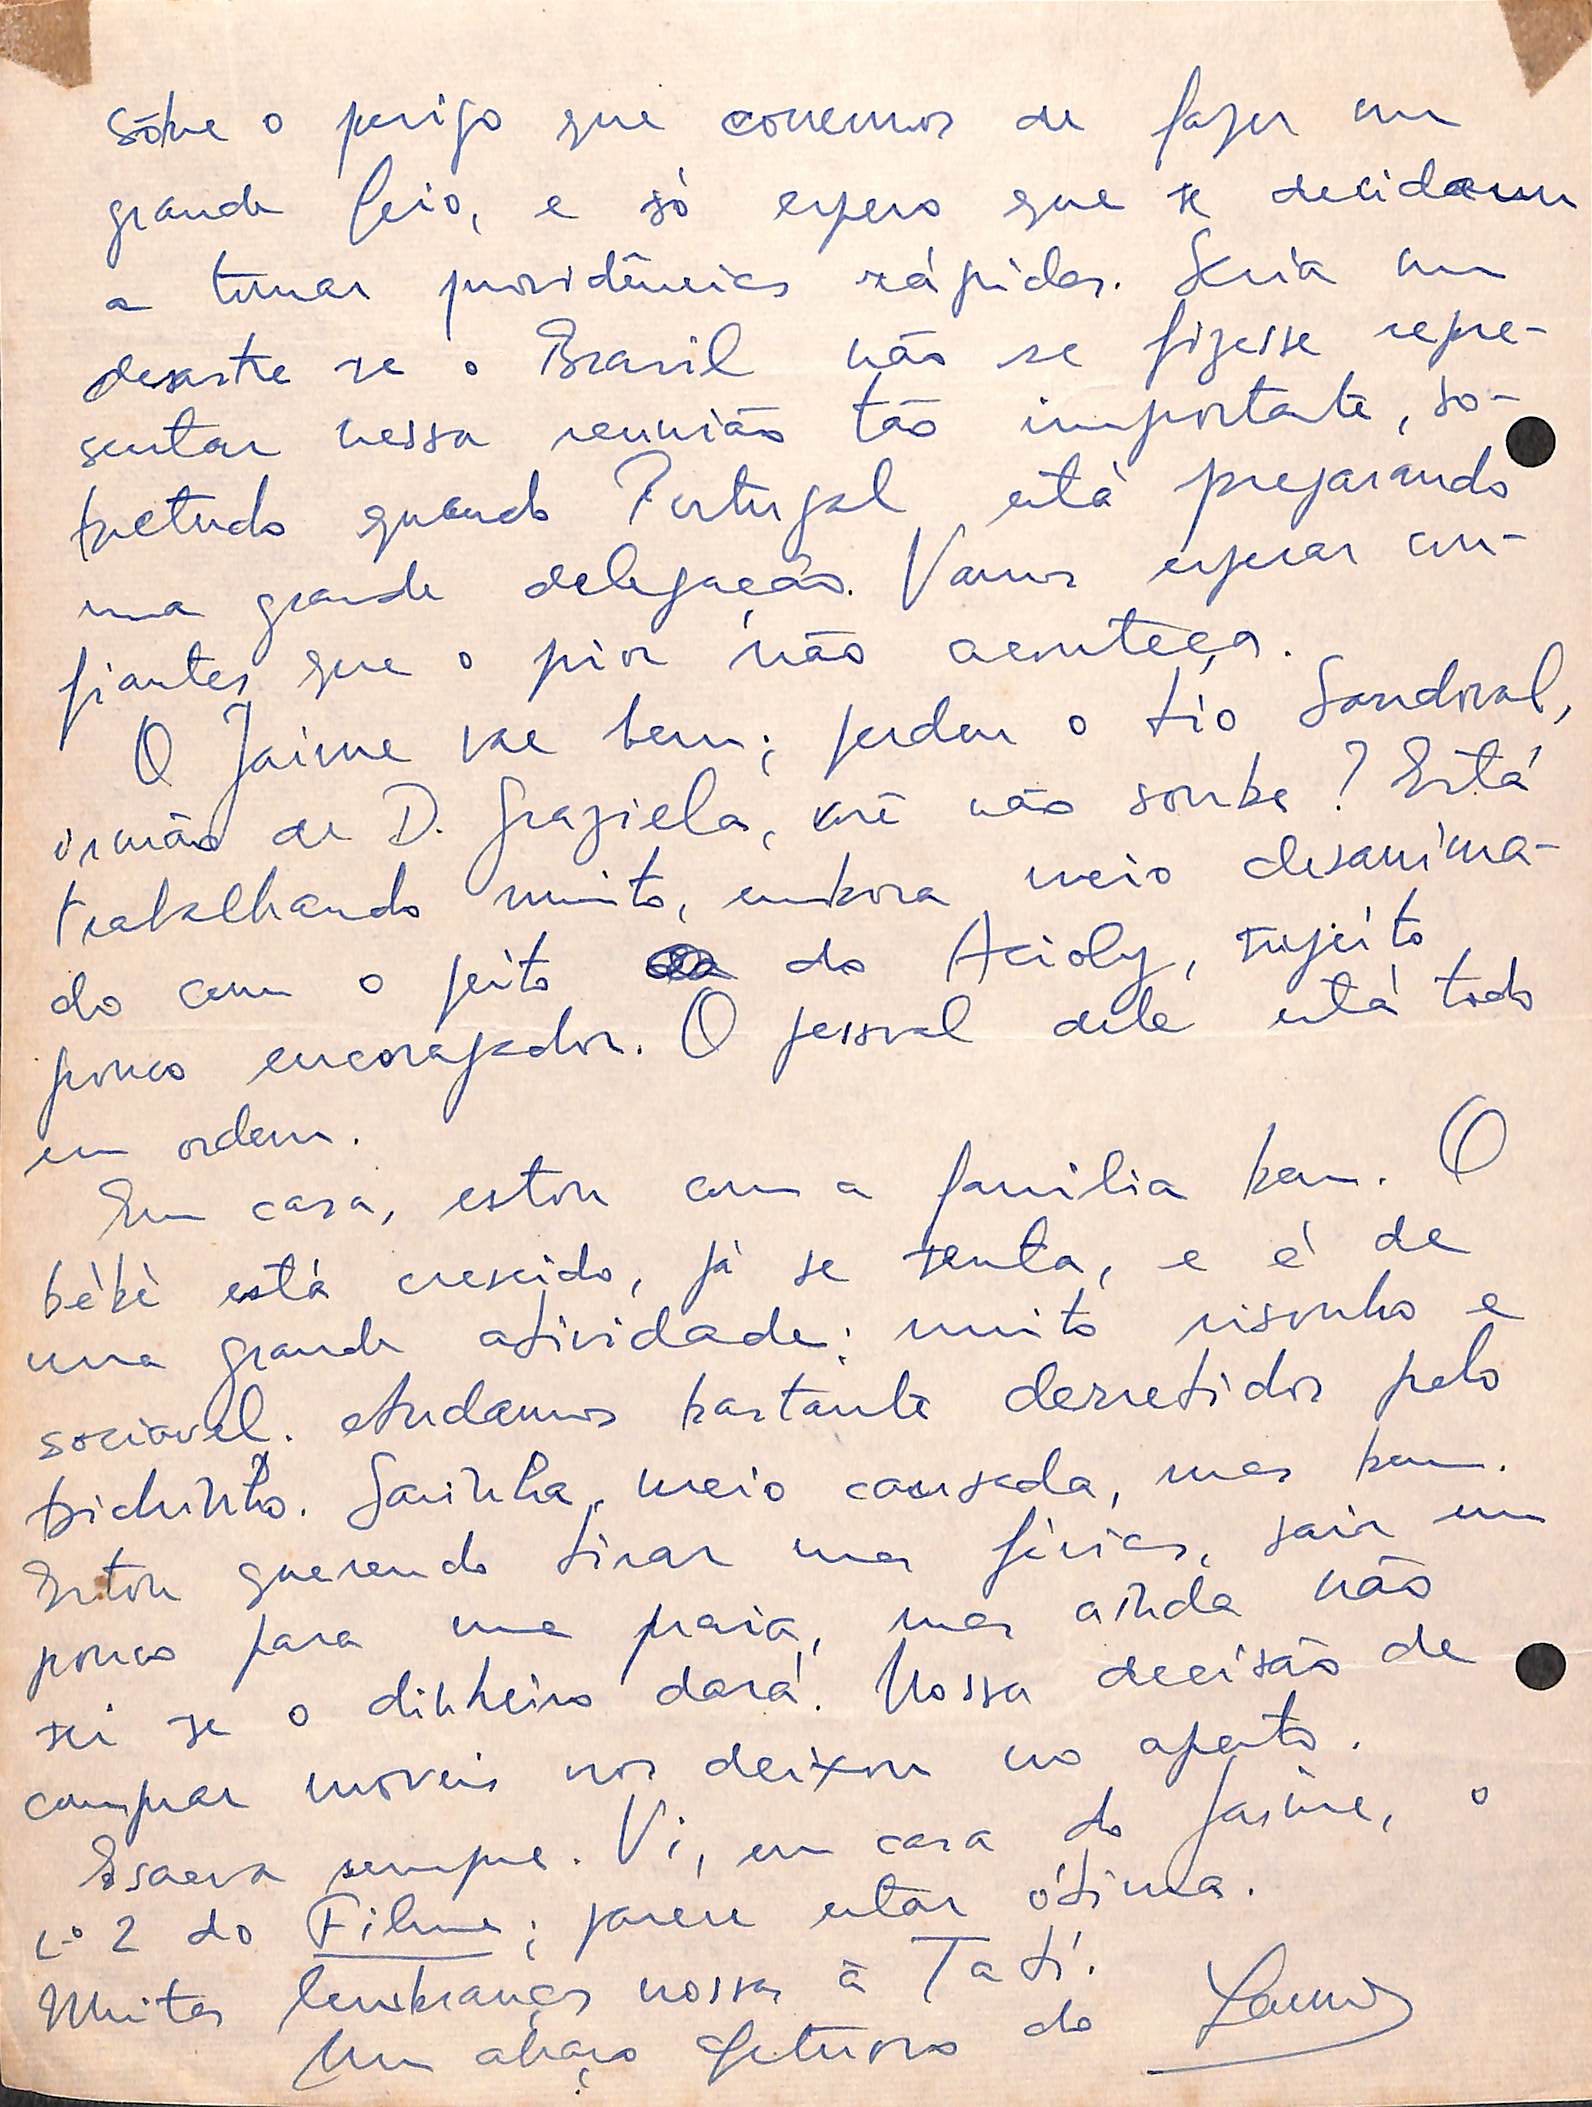 sôbre o perigo que corremos de fazer um
grande feio, e só espero que se decidam
a tomar providências rápidas. Seria um
desastre se o Brasil não se fizesse repre-
sentar nessa reunião tão importante, so-
bretudo quando Portugal está preparando
uma grande delegação. Vamos esperar con-
fiantes que o pior não aconteça.
O Jaime vae bem; perdeu o tio Sandoval,
irmão de D. Graziela, você não soube? Está
trabalhando muito, embora meio desanima-
do com o jeito do Acioly, sujeito
pouco encorajador. O pessoal dele está todo
em ordem.
Em casa, estou com a familia bem. O
bébé está crescido, já se senta, e é de
uma grande atividade; muito risonho e
sociavel. Andamos bastante derretidos pelo
bichinho. Sarinha, meio cansada, mas bem.
Estou querendo tirar umas férias, sair um
pouco para uma praia, mas ainda não
sei se o dinheiro dará. Nossa decisão de
comprar moveis nos deixou no aperto.
Escreva sempre. Vi, em casa do Jaime, o
nº 2 do Filme; parece estar ótima.
Muitas lembranças nossas à Tati.
Um abraço afetuoso do Lauro